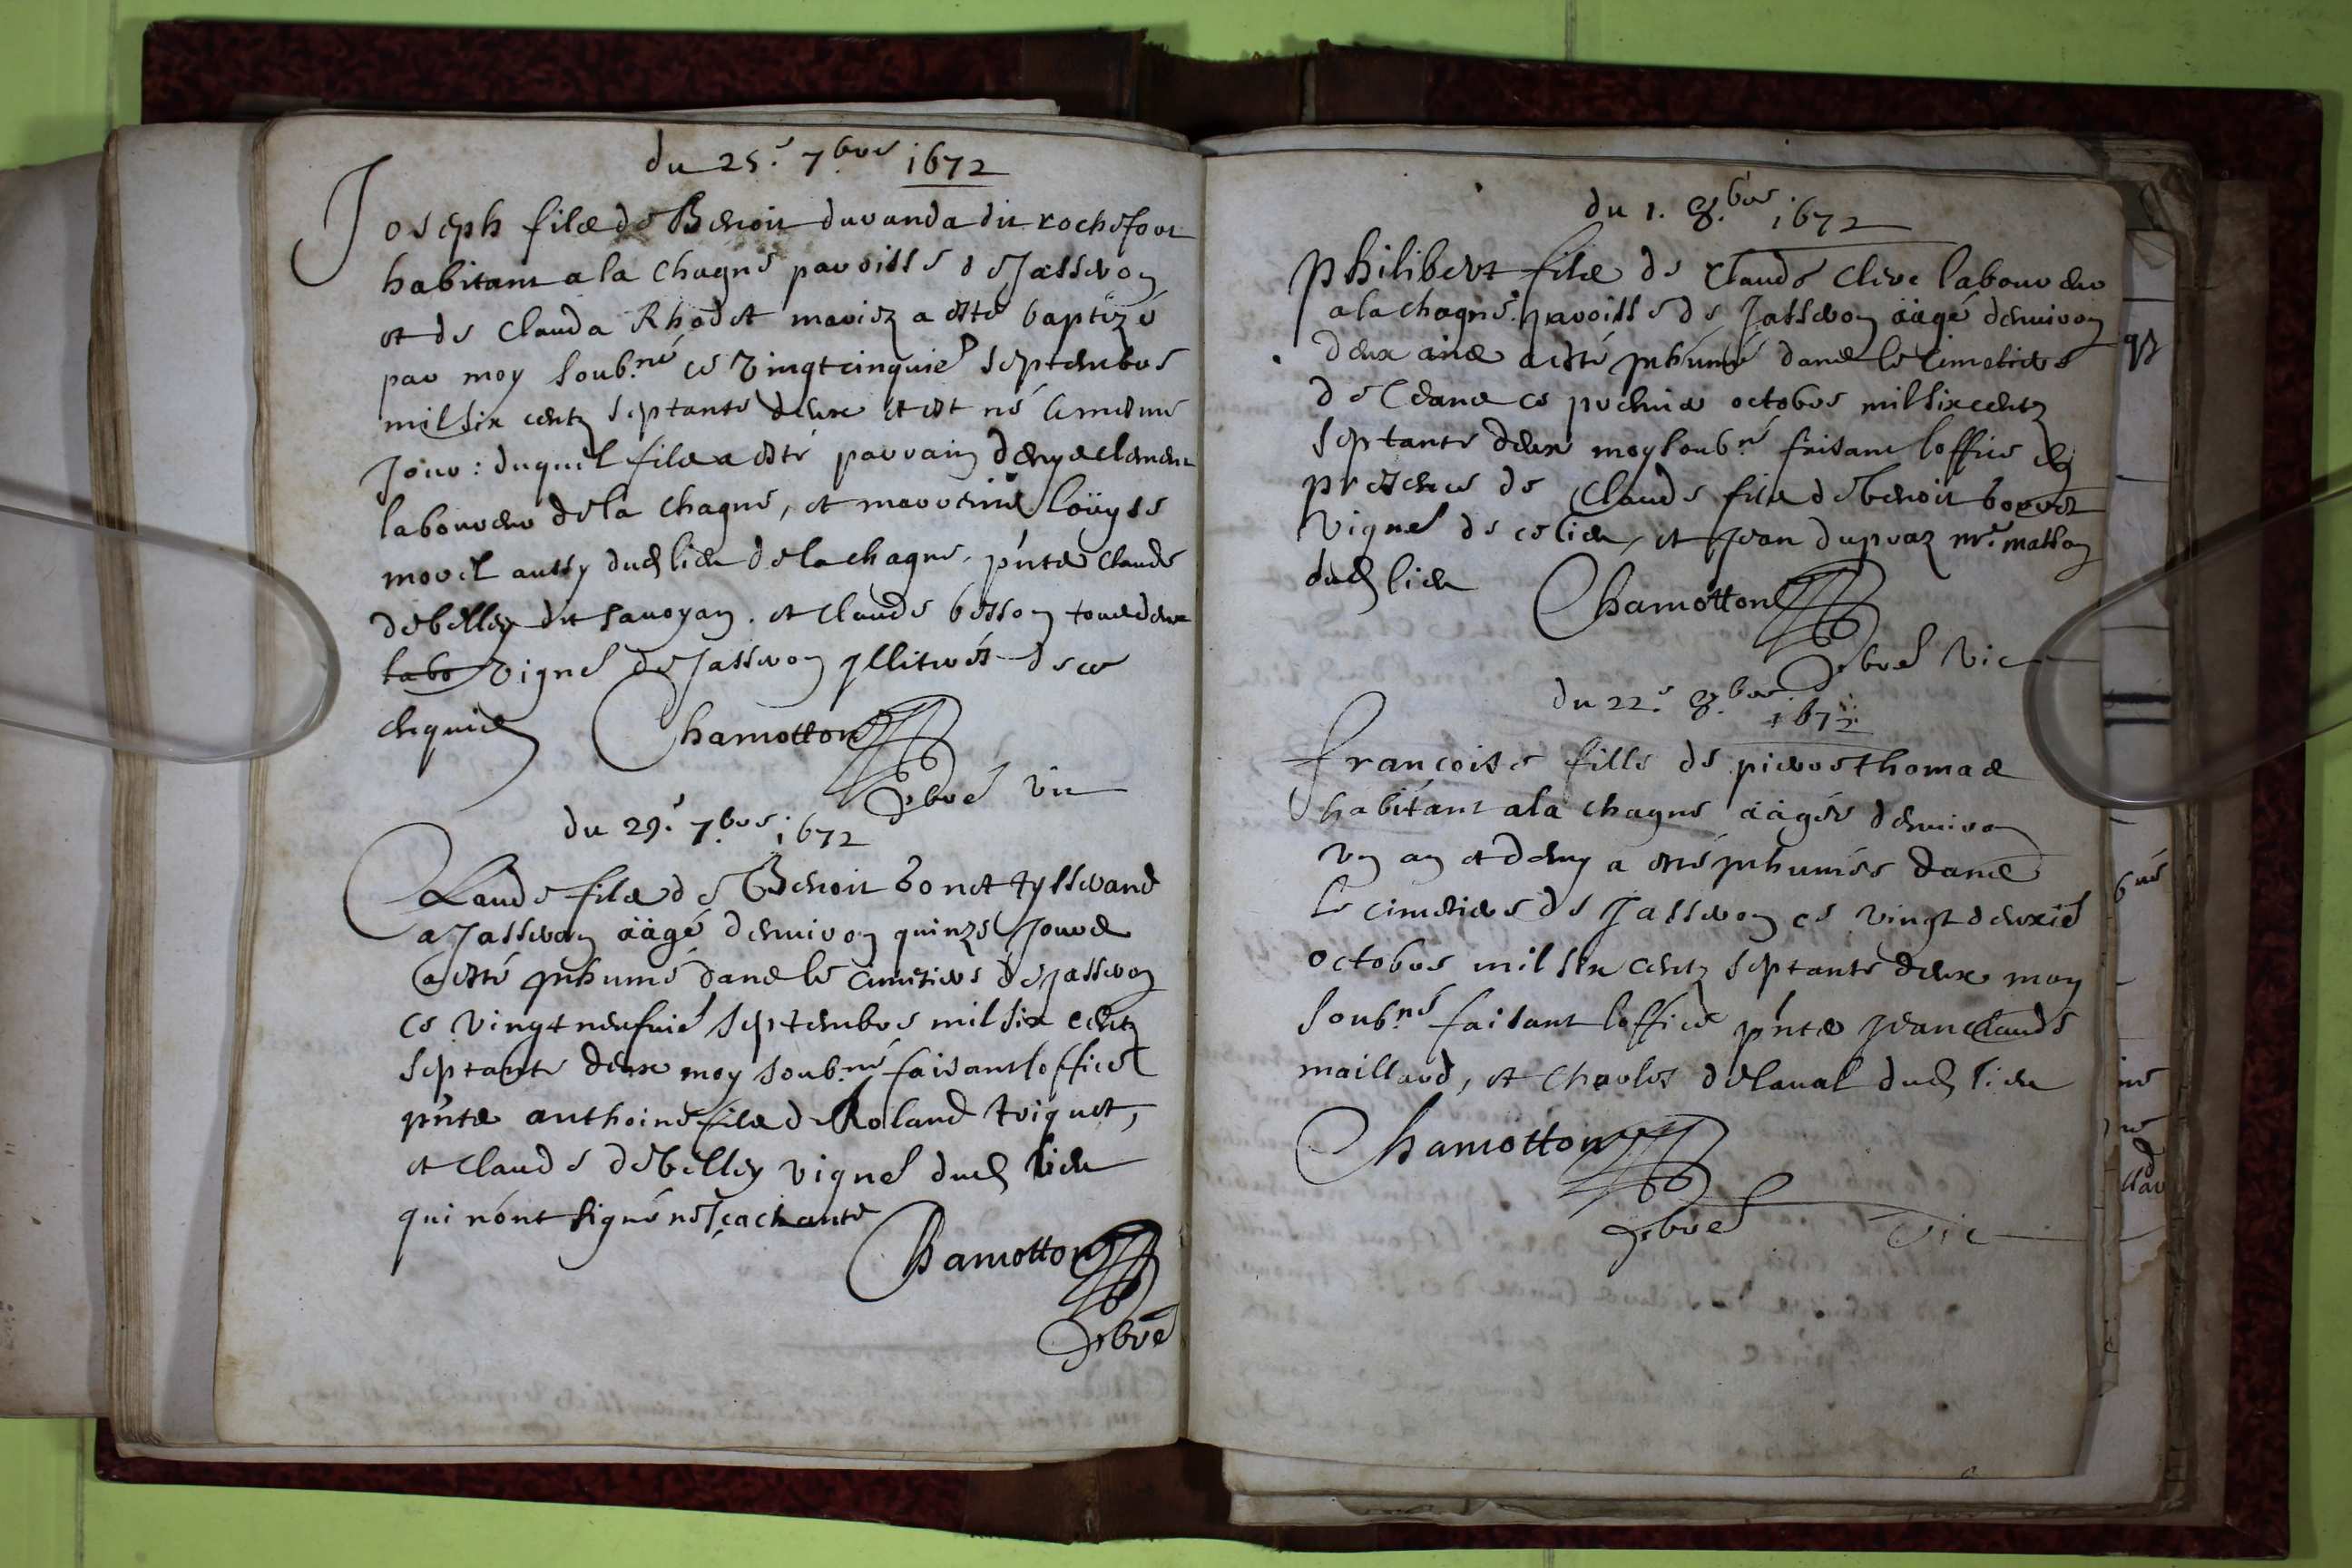 du 25.e 7.bre 1672
Joseph filz de Benoit duranda dit rochefort
habitant a la Chagne paroisse de Jasseron
et de Clauda Rhodet mariez a esté baptizé
par moy soub.né ce vingtcinquie septembre
mil six centz septante deux et est né le mesme
Jour : duquel filz a esté parrain denys clement
laboureur de la Chagne, et marreine Loüyse
morel aussy dud lieu de la chagne. pntz Claude
debelley dit savoyan. et Claude besson tous deux
labo vigne de Jasseron jllitres de ce
enquis Chamotton
pbre vic
du 29.e 7.bre 1672
Claude filz de Benoit bonet tysserand
a Jasseron äagé denviron quinze Jours
a esté jnhumé dans le cimitiere de Jasseron
ce vingt neufvie septembre mil six centz
septante deux moy soub.né faisant loffice
pntz anthoine filz de Roland triquet,
et Claude debelley vigne dud lieu
qui nont signé ne sçachantz
Chamotton
pbre
du 1. 8.bre 1672
Philibert filz de Claude Clere laboureur
a la chagne paroisse de Jasseron äagé denviron
deux ans a esté jnhumé dans le cimetiere
de Ceans ce premier octobre mil six centz
septante deux moy soub.né faisant loffice en
presence de Claude filz de benoit bonet
vigne de ce lieu, et Jean dupraz me. masson
dud lieu Chamotton
pbre vic
du 22.e 8.bre 1672
françoise fille de pierre thomas
habitant a la chagne äagée denviron
vn an et demy a esté jnhumée dans
le cimetiere de Jasseron ce vingt deuxie
octobre mil six centz septante deux moy
soub.né faisant loffice pntz Jean claude
maillard, et Charles delaval dud lieu
Chamotton
pbre vic